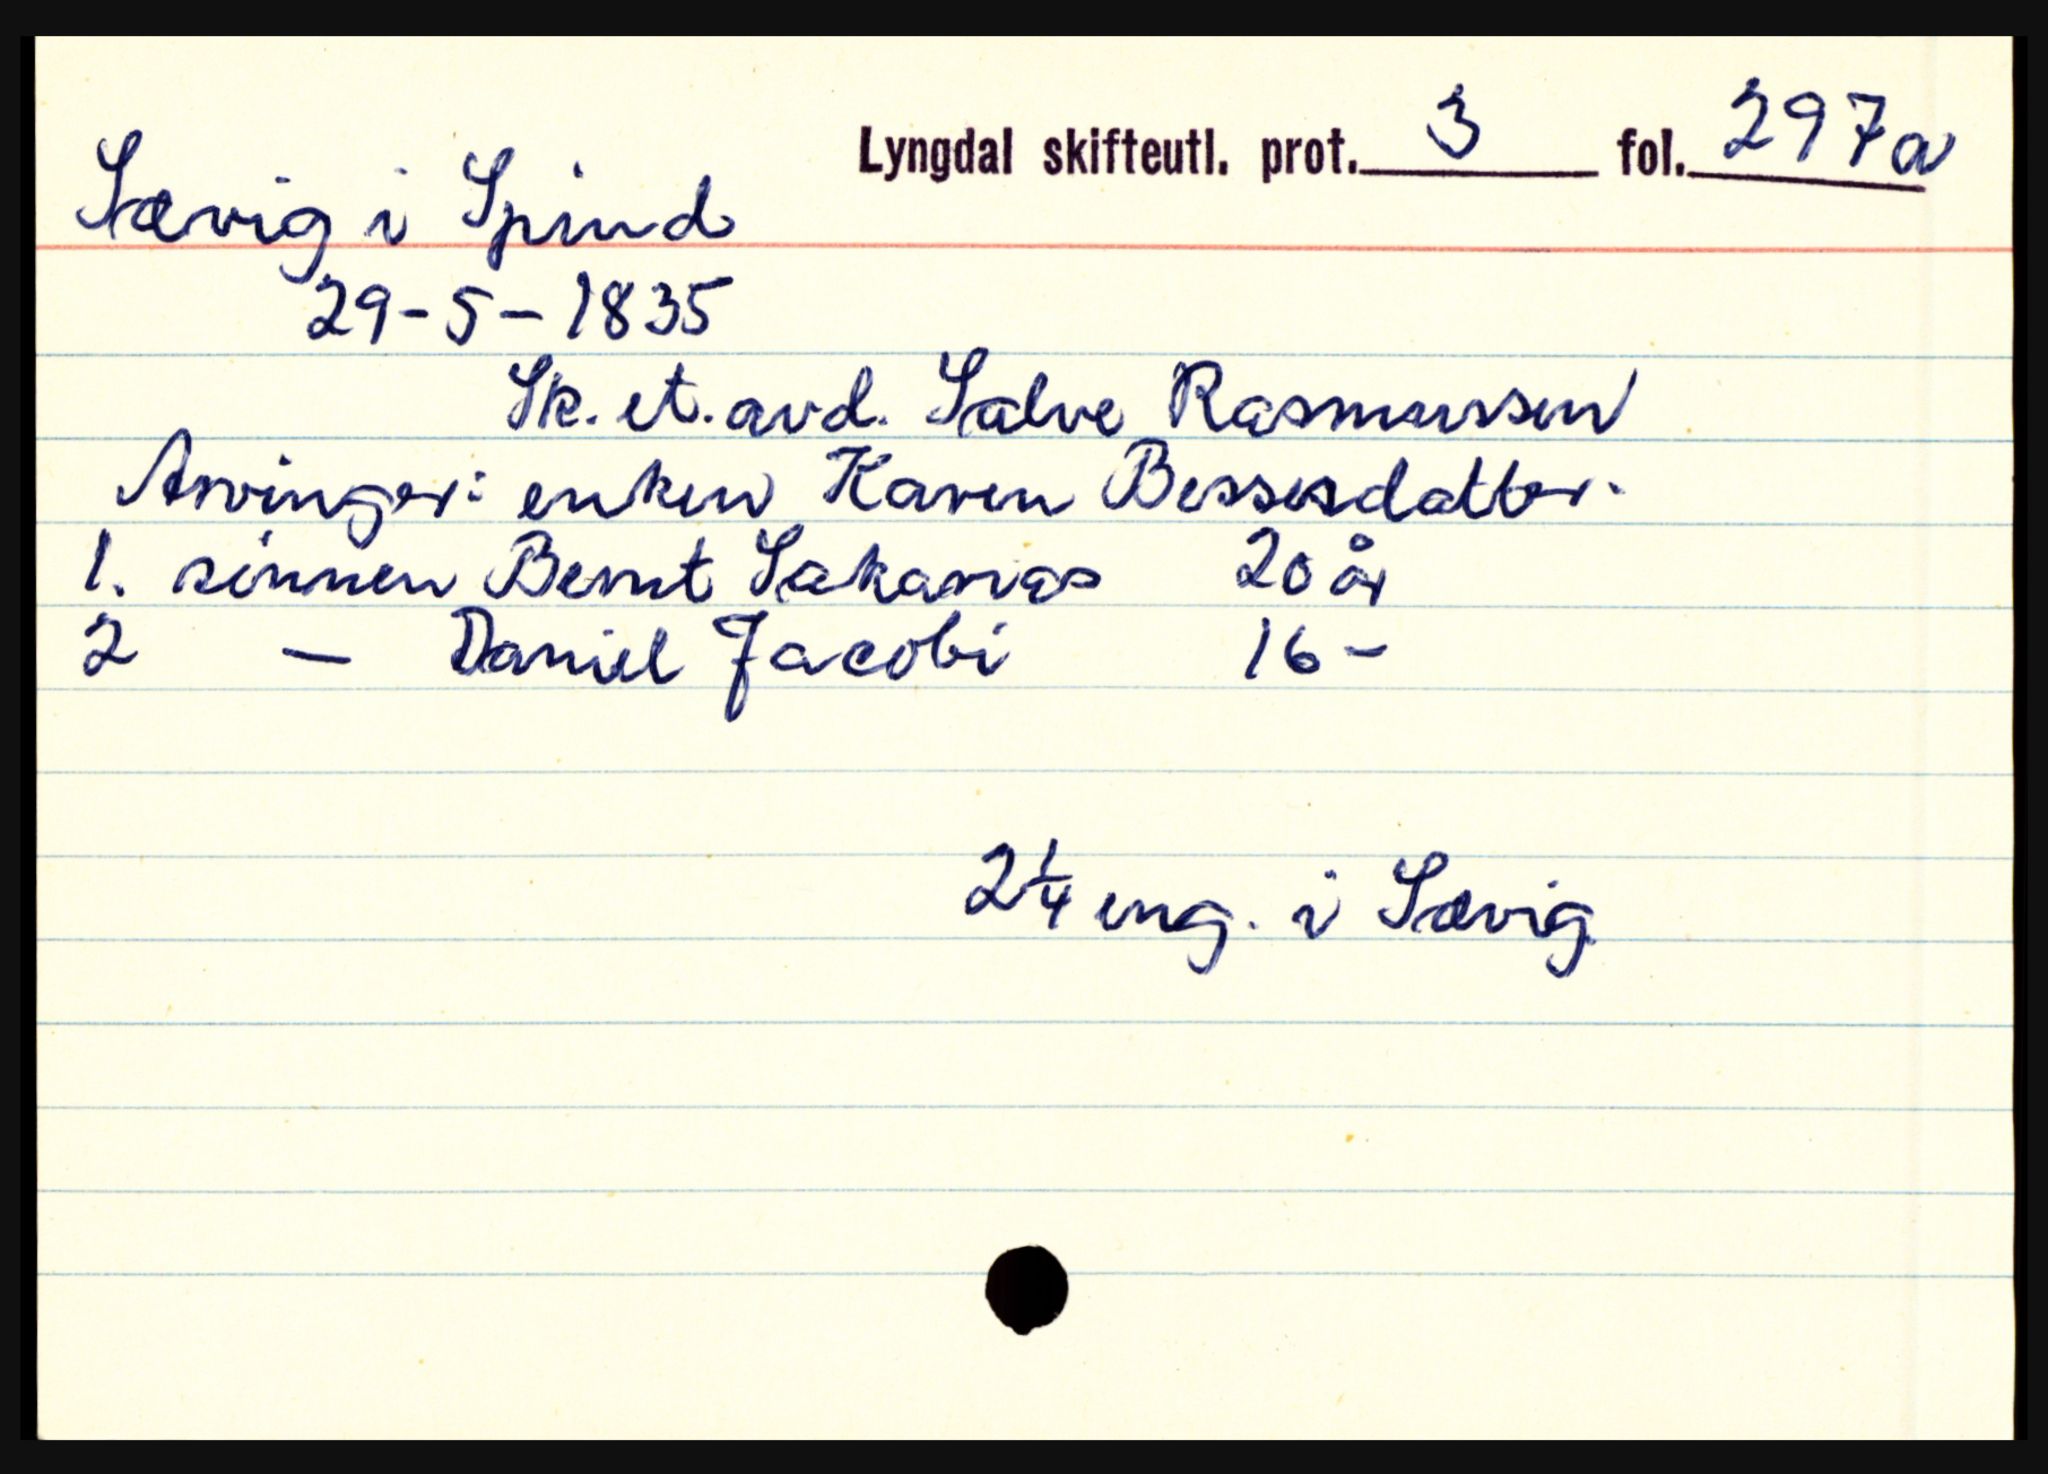 Lyngdal skifteutl. prot. 3 fol. 297a
Sævig i Spind
29-5-1835
Sk. et. avd. Salve Rasmussen
Arvinger: enken Karen Bessesdatter.
1. sønnen Bernt Sakarias 20 år
2 — Daniel Jacobi 16 -
2 1/4 eng. i Sævig